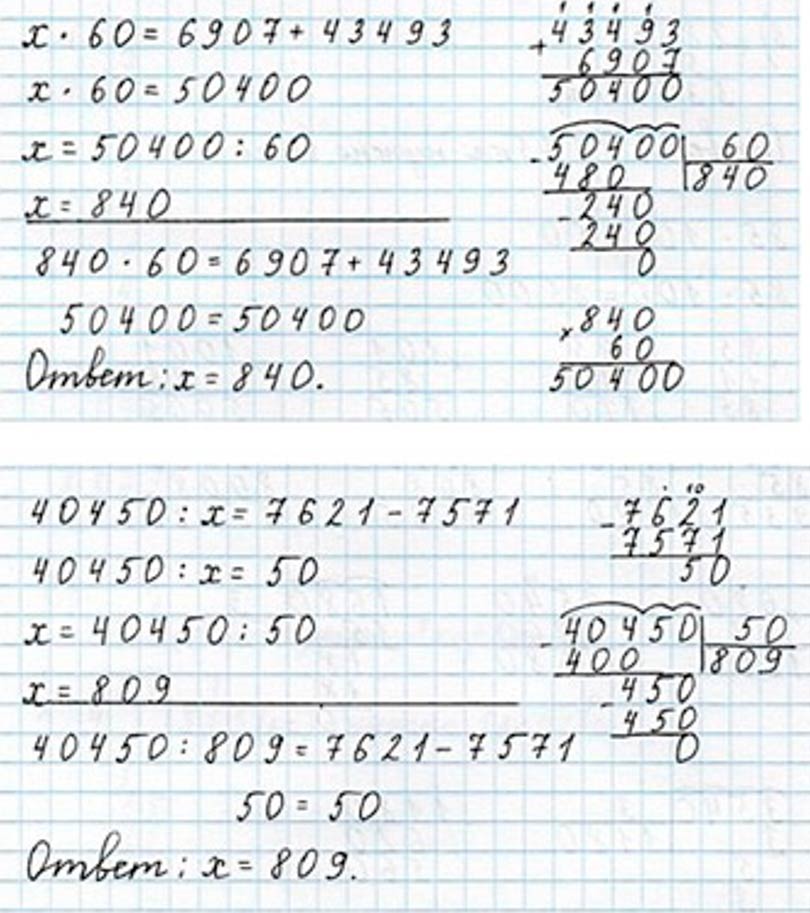 x · 60 = 6907 + 43493
x · 60 = 50400
x = 50400 : 60
x = 840
840 · 60 = 6907 + 43493
50400 = 50400
Ответ: x = 840.
43493
+
6907
50400
- 50400 60
480 840
- 240
240
0
× 840
60
50400
40450 : x = 7621 - 7571
40450 : x = 50
x = 40450 : 50
x = 809
40450 : 809 = 7621 - 7571
50 = 50
Ответ: x = 809.
10
- 7621
7571
50
- 40450 50
400 809
- 450
450
0